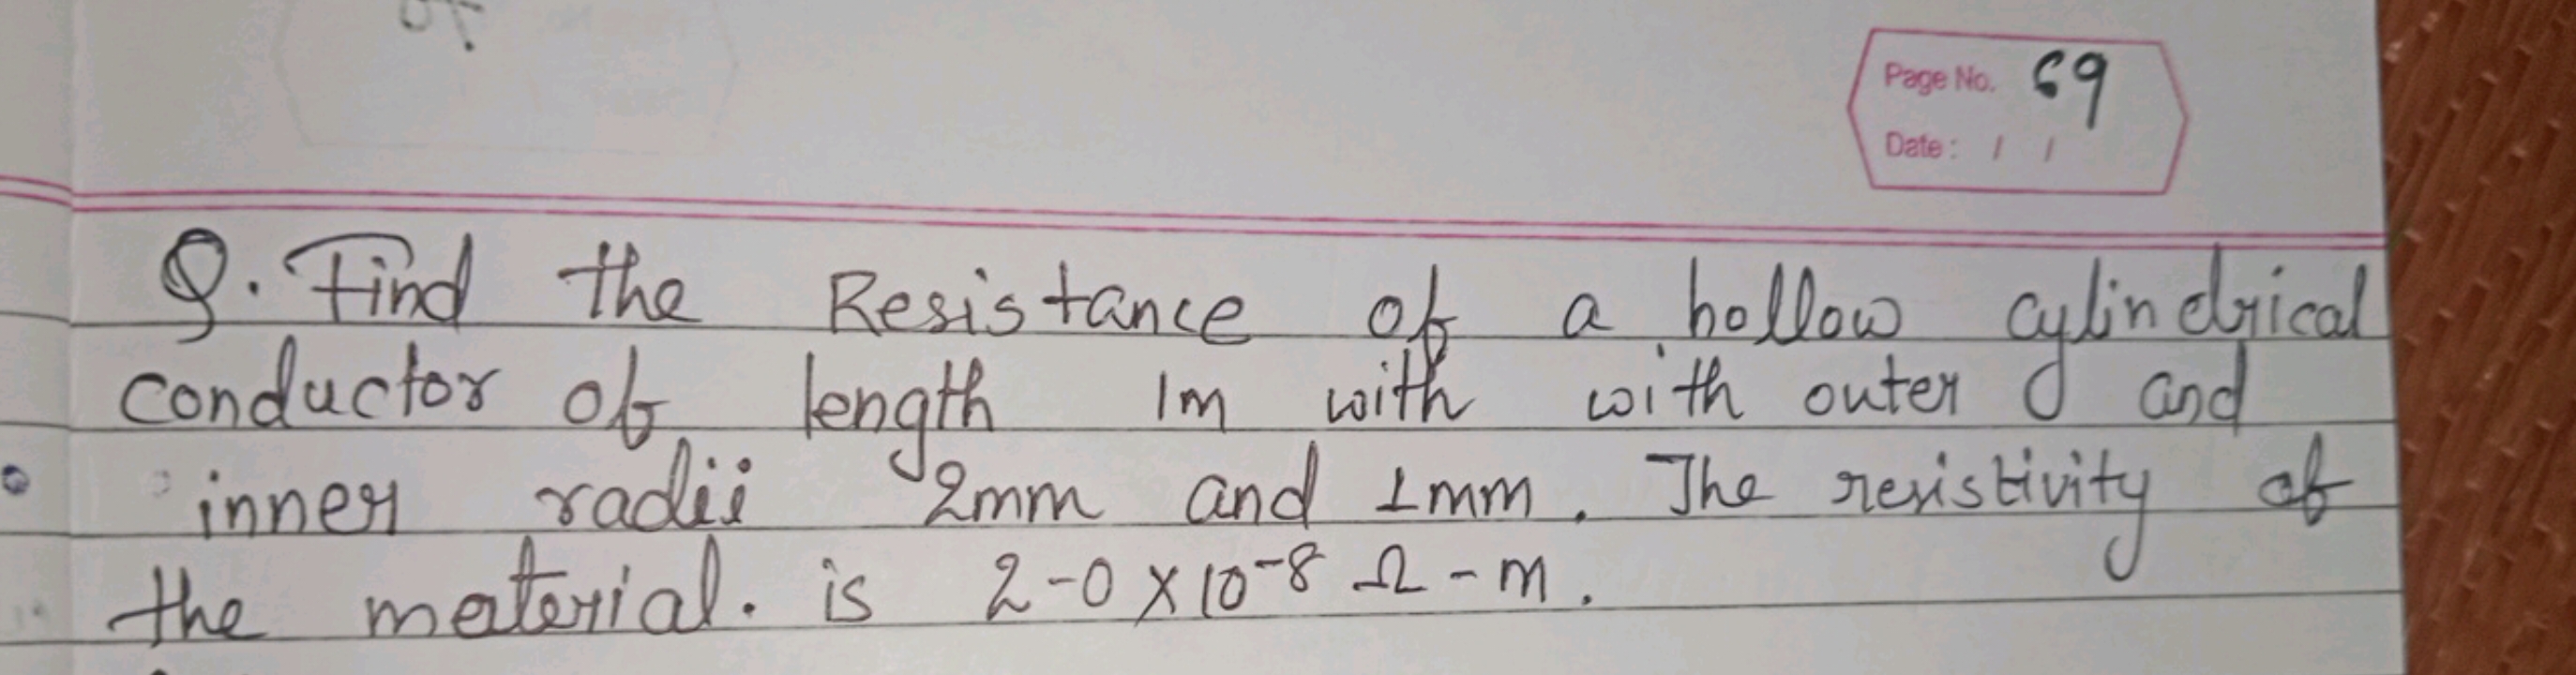 Page No. 69
Date: / /
Q. Find the Resistance of a hollow cylindrical
conductor of length 1m with with outer and
inner radii 2mm and 1mm. The resistivity of
the material. is 2-0 × 10⁻⁸ Ω-m.